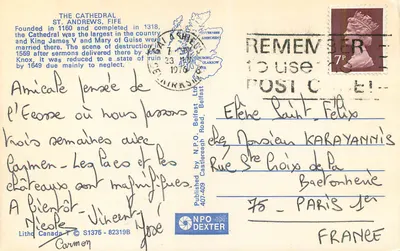 THE CATHEDRAL
ST. ANDREWS, FIFE
Founded in 1160 and completed in 1318,
the Cathedral was the largest in the country
and King James V and Mary of Guise were
married there. The scene of destruction in
1568 after sermons delivered there by John
Knox, it was reduced to a state of ruin
by 1649 due mainly to neglect.
GALASHIELS
1976
SELKIRKSHIRE
REMEMBER
to use
POST C
7P
Amicale pensée de
l'Ecosse où nous passons
trois semaines avec
Carmen - Les lacs et les
châteaux sont magnifiques
A bientôt -
Nicole Vincent José
Carmen
Published by N.P.O. Belfast Ltd.
407-409 Castlereagh Road, Belfast
Elène Saint-Félix
chez Monsieur KARAYANNIS
Rue Ste Croix de la
Bretonnerie
75 - PARIS 1er
FRANCE
Litho Canada S1375 - 82319B
NPO
DEXTER